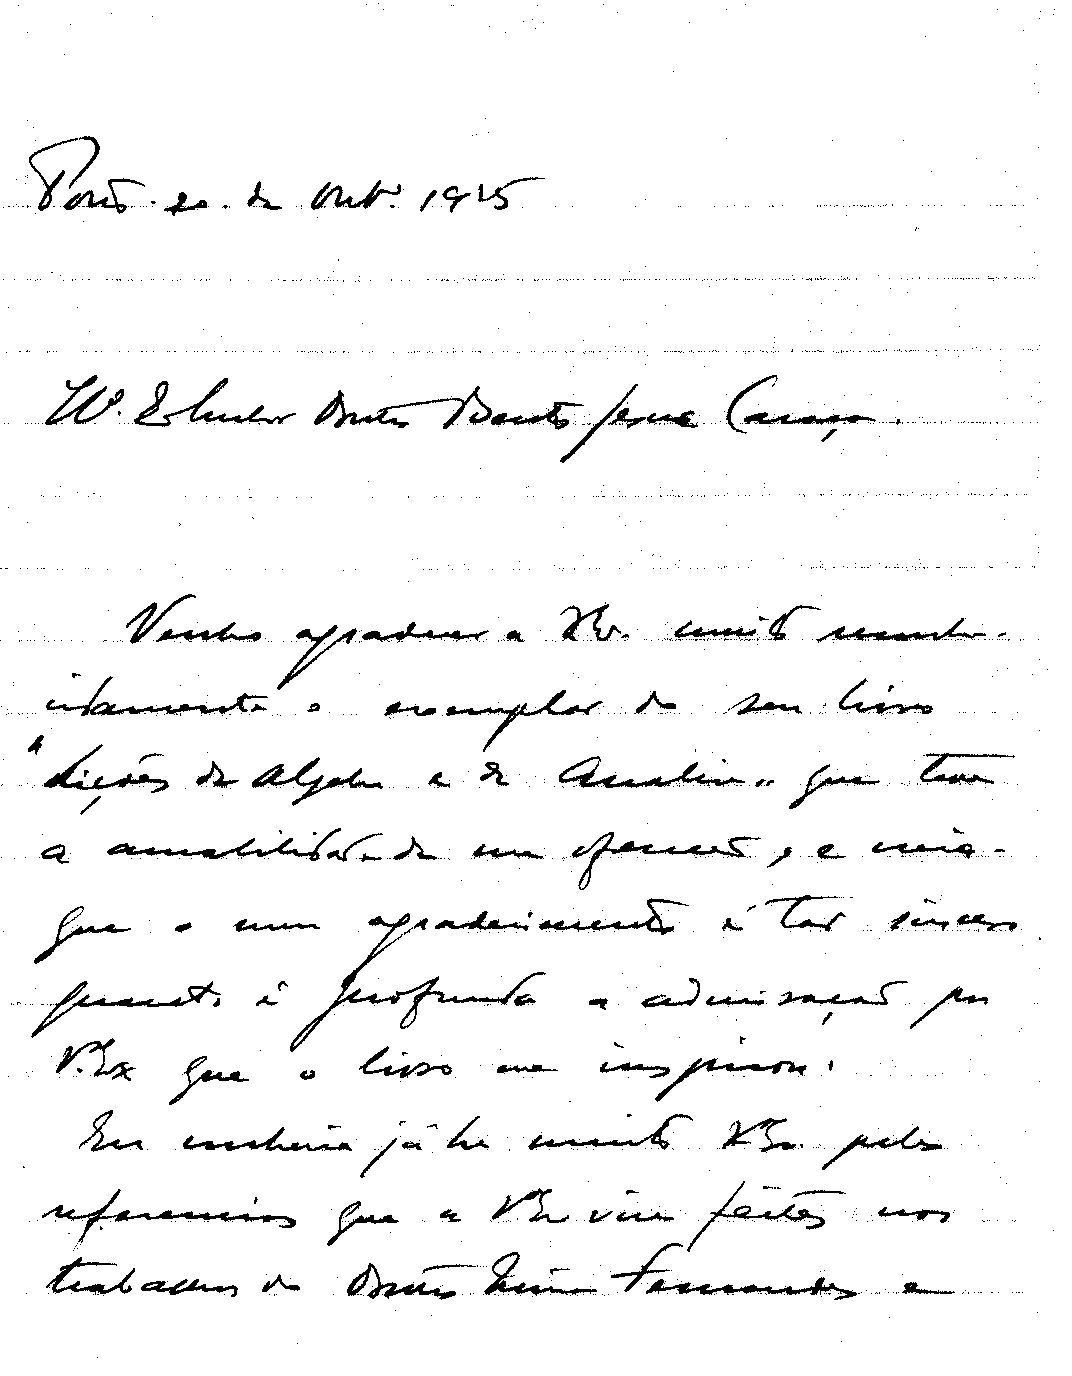 Porto. 20. de Out.º 1925
Ill.º Ex.mo Senhor Doutor Bento Jesus Caraça.
Venho agradecer a V.Ex. muito reconhe-
cidamente o exemplar do seu livro
"Lições de Algebra e de Analise" que teve
a amabilidade de me oferecer, e creia
que o meu agradecimento é tão sincero
quanto é profunda a admiração por
V.Ex que o livro me inspirou.
Eu conhecia já ha muito V.Ex. pelas
referencias que a V.Ex vira feitas nos
trabalhos do Doutor Fernandes e